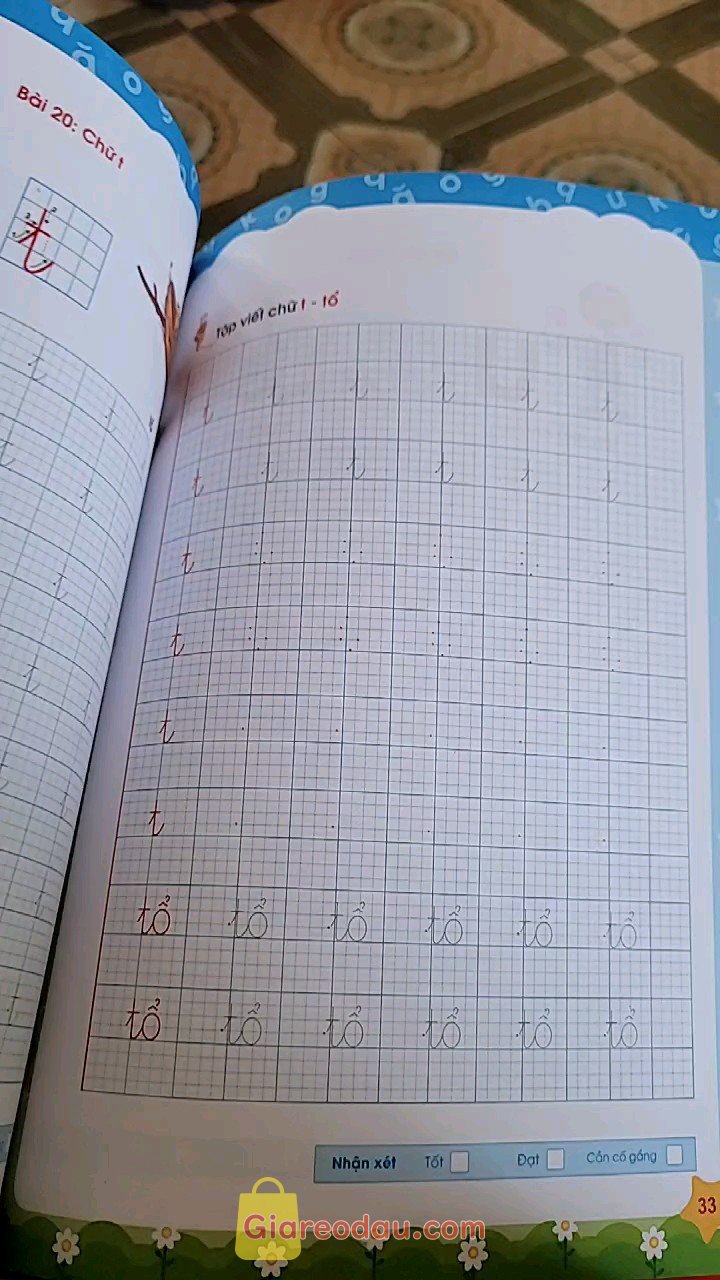 Bài 20: Chữ t
t
t
t
t
t
t
Tập viết chữ t - tổ
t t t t t t
t t t t t t
t
t
t
t
tổ tổ tổ tổ tổ tổ
tổ tổ tổ tổ tổ tổ
Nhận xét Tốt Đạt Cần cố gắng
33
Giareodau.com